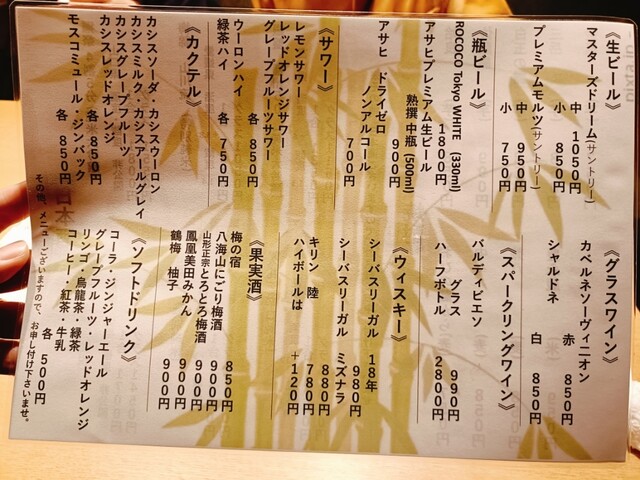 《生ビール》
マスターズドリーム(サントリー)
中 1050円
小 850円
プレミアムモルツ(サントリー)
中 950円
小 750円
《瓶ビール》
ROCOCO Tokyo WHITE (330ml)
1800円
アサヒプレミアム生ビール
熟撰 中瓶 (500ml)
900円
アサヒ ドライゼロ
ノンアルコール
700円
《サワー》
レモンサワー
レッドオレンジサワー
グレープフルーツサワー
各 850円
ウーロンハイ
緑茶ハイ
各 750円
《カクテル》
カシスソーダ・カシスウーロン
カシスミルク・カシスアールグレイ
カシスグレープフルーツ
カシスレッドオレンジ
各 850円
モスコミュール・ジンバック
各 850円
《グラスワイン》
カベルネソーヴィニオン
赤 850円
シャルドネ
白 850円
《スパークリングワイン》
バルディビエソ
グラス 990円
ハーフボトル 2800円
《ウィスキー》
シーバスリーガル 18年
980円
シーバスリーガル ミズナラ
880円
キリン 陸 780円
ハイボールは +120円
《果実酒》
梅の宿 850円
八海山にごり梅酒 900円
山形正宗とろとろ梅酒 900円
鳳凰美田みかん 900円
鶴梅 柚子 900円
《ソフトドリンク》
コーラ・ジンジャーエール
グレープフルーツ・レッドオレンジ
リンゴ・烏龍茶・緑茶
コーヒー・紅茶・牛乳
各 500円
その他、メニューございますので、お申し付け下さいませ。